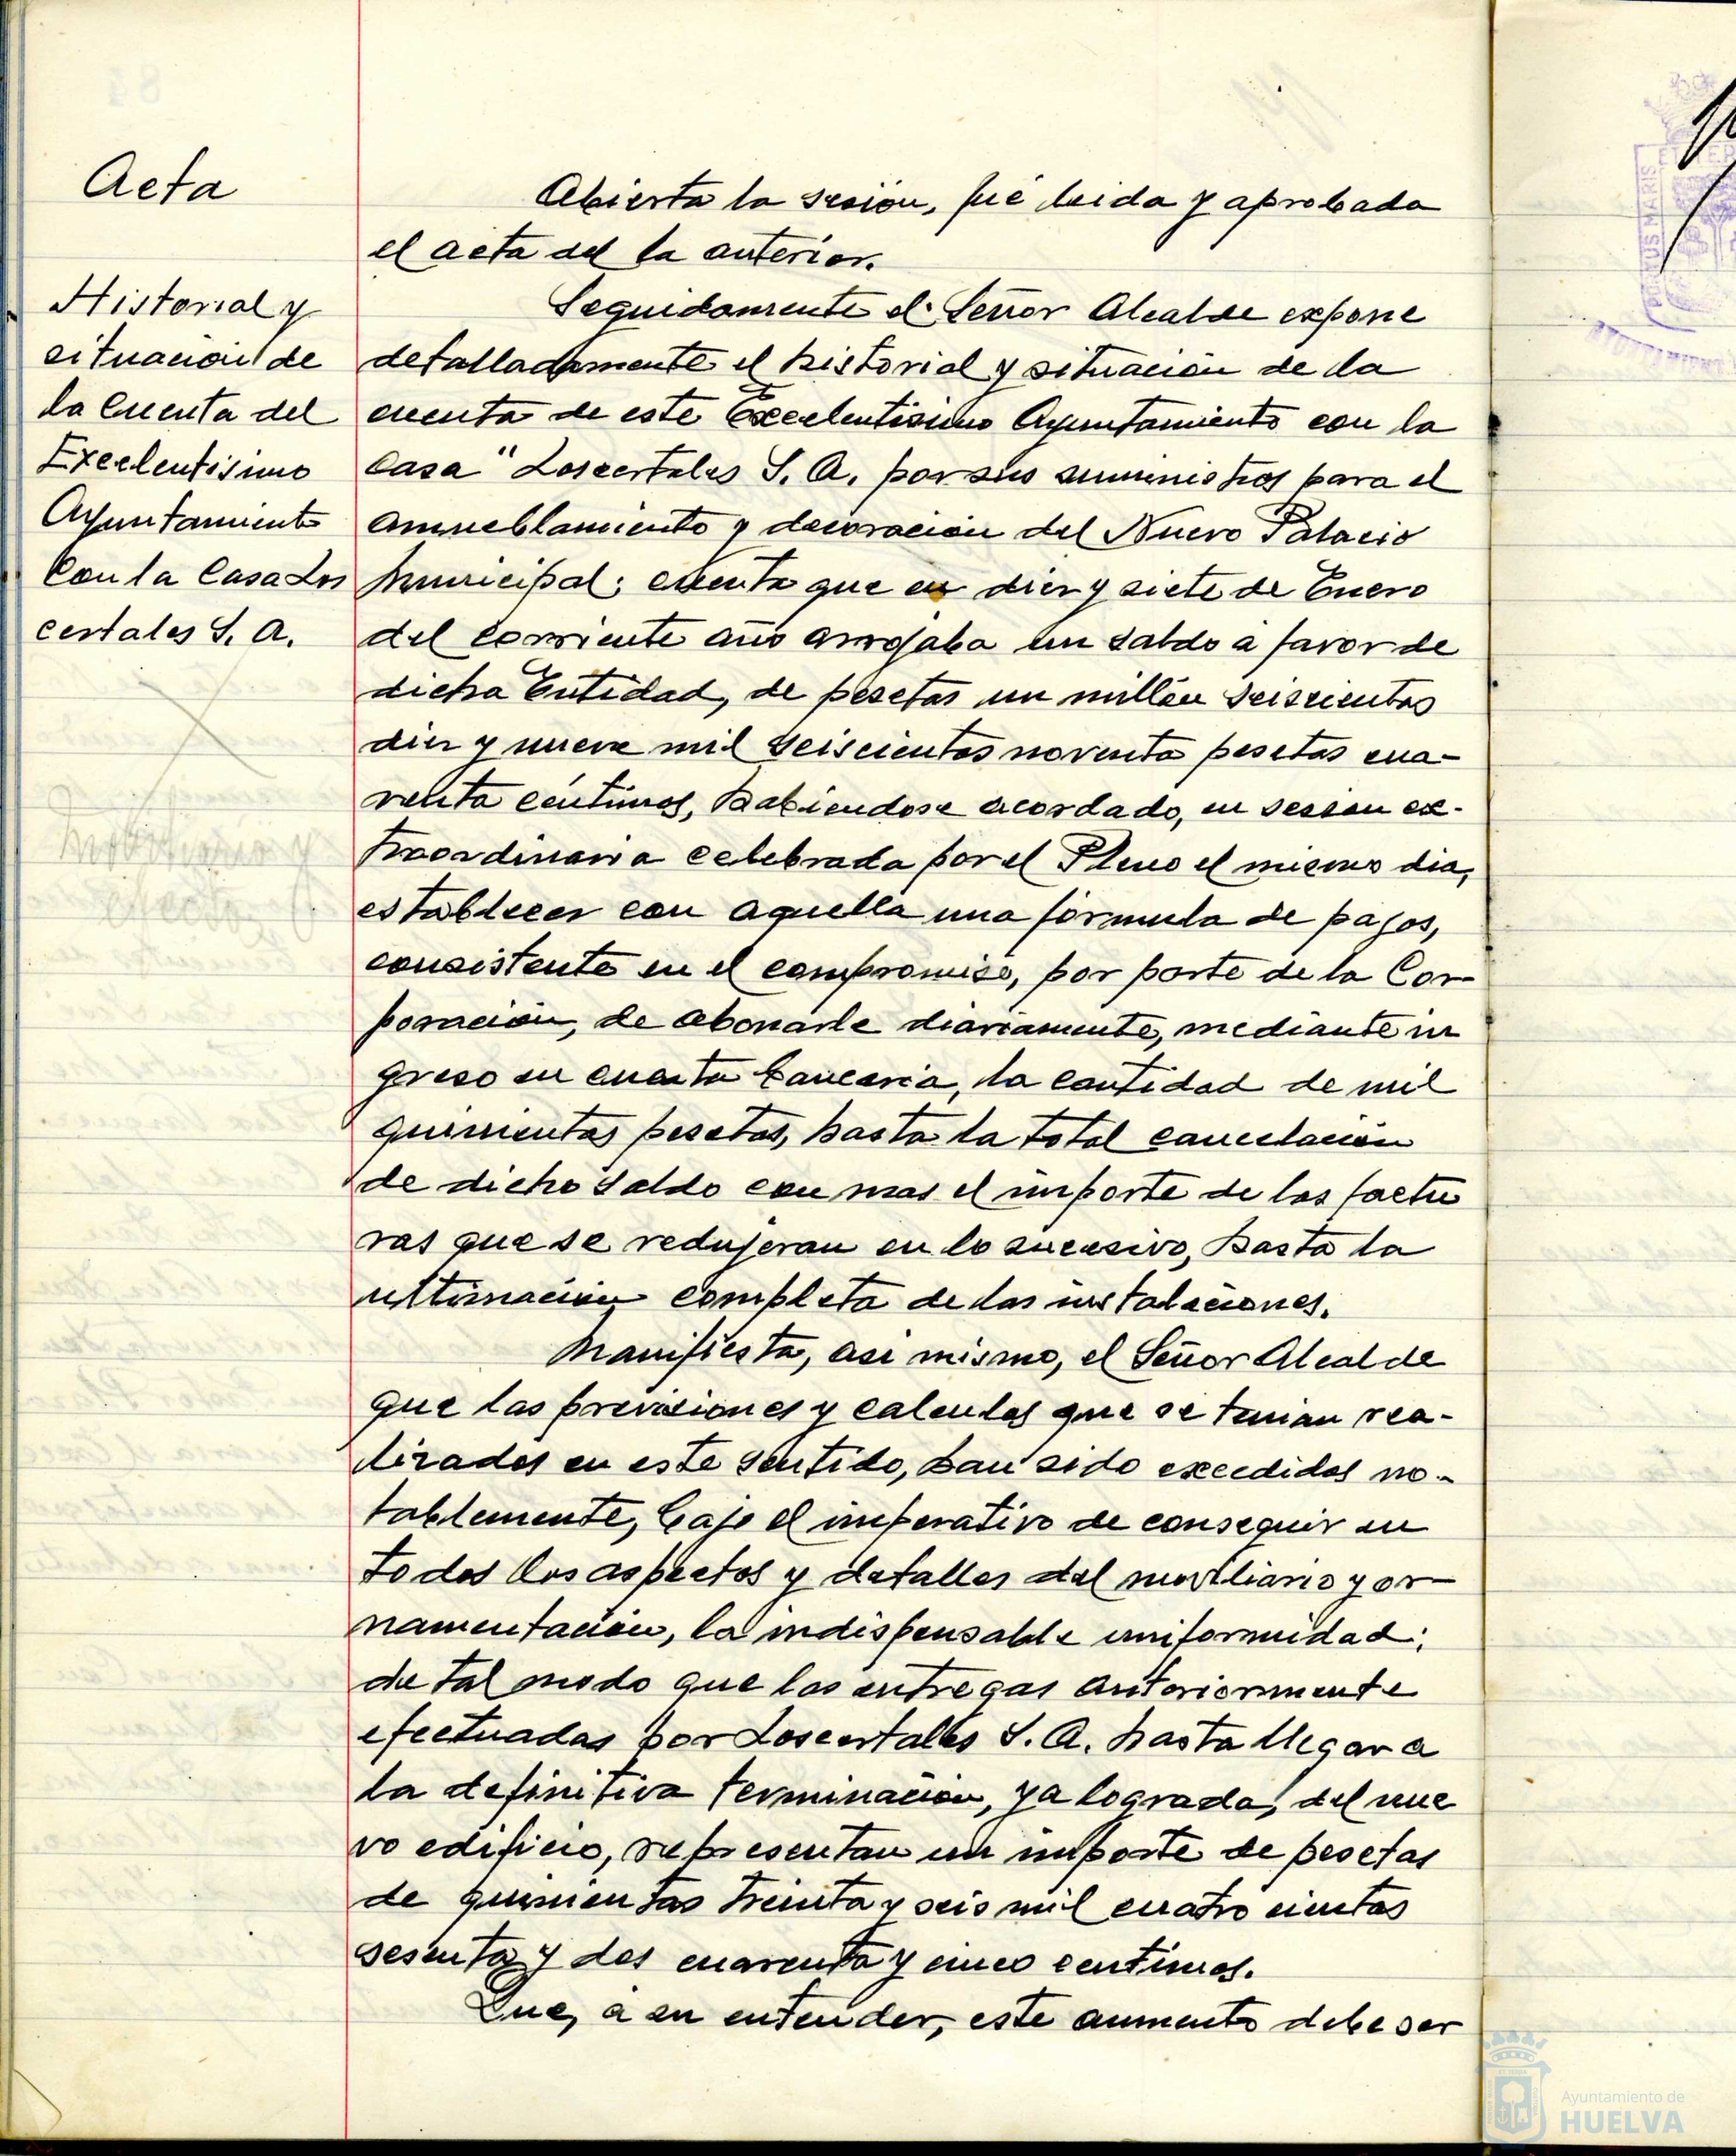 Acta
Historial y
situación de
la Cuenta del
Excelentísimo
Ayuntamiento
Con la Casa Los
certales S. A.
Abierta la sesión, fué leida y aprobada
el acta del la anterior.
Seguidamente el Señor Alcalde expone
detalladamente el historial y situación de la
cuenta de este Excelentísimo Ayuntamiento con la
Casa " Loscertales S. A. por sus suministros para el
amueblamiento y decoración del Nuevo Palacio
Municipal; cuenta que en diez y siete de Enero
del corriente año arrojaba un saldo a favor de
dicha Entidad, de pesetas un millón seiscientos
diez y nueve mil seiscientos noventa pesetas cua-
renta céntimos, habiendose acordado, en sesion ex-
traordinaria celebrada por el Pleno el mismo dia,
establecer con aquella una fórmula de pagos,
consistente en el compromiso, por parte de la Cor-
poración, de abonarle diariamente, mediante in
greso en cuenta bancaria, la cantidad de mil
quinientas pesetas, hasta la total cancelación
de dicho saldo con mas el importe de las factu
ras que se redujeran en lo sucesivo, hasta la
ultimación completa de las instalaciones.
Manifiesta, asi mismo, el Señor Alcalde
que las previsiones y calculos que se tenian rea-
lizados en este sentido, han sido excedidos no-
tablemente, bajo el imperativo de conseguir en
todos los aspectos y detalles del moviliario y or-
namentación, la indispensable uniformidad;
de tal modo que las entregas anteriormente
efectuadas por Loscertales S. A. hasta llegar a
la definitiva terminación, ya lograda, del nue
vo edificio, representan un importe de pesetas
de quinientas treinta y seis mil cuatro cientas
sesenta y dos cuarenta y cinco centimos.
Que, a su entender, este aumento debe ser
Ayuntamiento de
HUELVA